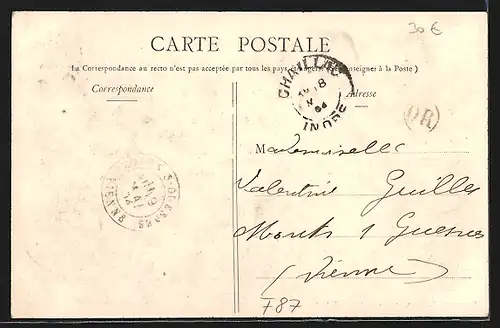 30€
CARTE POSTALE
(La Correspondance au recto n'est pas acceptée par tous les pays
à la Poste)
Correspondance
Adresse
CHAILLAC
18
04
INDRE
OR
Mademoiselle
Valentine Guilles
(Vienne)
F87
VIENNE